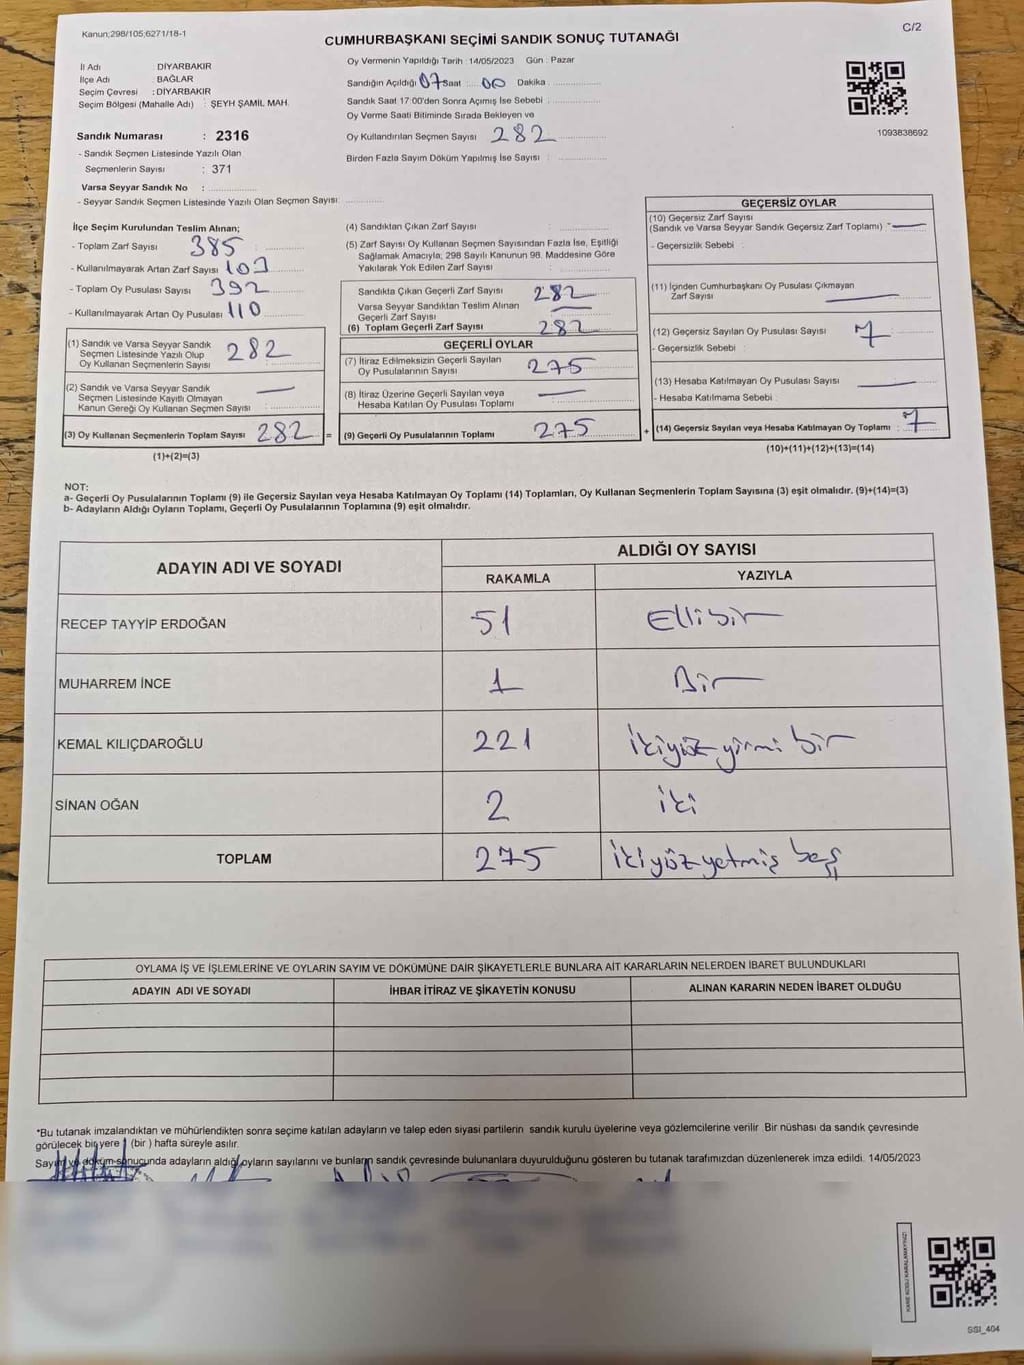 Kanun;298/105;6271/18-1
C/2
CUMHURBAŞKANI SEÇİMİ SANDIK SONUÇ TUTANAĞI
İl Adı DİYARBAKIR
İlçe Adı BAĞLAR
Seçim Çevresi : DİYARBAKIR
Seçim Bölgesi (Mahalle Adı) : ŞEYH ŞAMİL MAH.
Sandık Numarası : 2316
- Sandık Seçmen Listesinde Yazılı Olan
Seçmenlerin Sayısı : 371
Varsa Seyyar Sandık No :
- Seyyar Sandık Seçmen Listesinde Yazılı Olan Seçmen Sayısı:
Oy Vermenin Yapıldığı Tarih : 14/05/2023 Gün : Pazar
Sandığın Açıldığı 07 Saat 00 Dakika
Sandık Saat 17:00'den Sonra Açımış İse Sebebi :
Oy Verme Saati Bitiminde Sırada Bekleyen ve
Oy Kullandırılan Seçmen Sayısı 282
Birden Fazla Sayım Döküm Yapılmış İse Sayısı :
1093838692
İlçe Seçim Kurulundan Teslim Alınan;
- Toplam Zarf Sayısı 385
- Kullanılmayarak Artan Zarf Sayısı 103
- Toplam Oy Pusulası Sayısı 392
- Kullanılmayarak Artan Oy Pusulası 110
(1) Sandık ve Varsa Seyyar Sandık
Seçmen Listesinde Yazılı Olup
Oy Kullanan Seçmenlerin Sayısı 282
(2) Sandık ve Varsa Seyyar Sandık
Seçmen Listesinde Kayıtlı Olmayan
Kanun Gereği Oy Kullanan Seçmen Sayısı
(3) Oy Kullanan Seçmenlerin Toplam Sayısı 282 =
(1)+(2)=(3)
(4) Sandıktan Çıkan Zarf Sayısı :
(5) Zarf Sayısı Oy Kullanan Seçmen Sayısından Fazla İse, Eşitliği
Sağlamak Amacıyla; 298 Sayılı Kanunun 98. Maddesine Göre
Yakılarak Yok Edilen Zarf Sayısı :
Sandıkta Çıkan Geçerli Zarf Sayısı 282
Varsa Seyyar Sandıktan Teslim Alınan
Geçerli Zarf Sayısı
(6) Toplam Geçerli Zarf Sayısı 282
GEÇERLİ OYLAR
(7) İtiraz Edilmeksizin Geçerli Sayılan
Oy Pusulalarının Sayısı 275
(8) İtiraz Üzerine Geçerli Sayılan veya
Hesaba Katılan Oy Pusulası Toplamı
(9) Geçerli Oy Pusulalarının Toplamı 275 +
GEÇERSİZ OYLAR
(10) Geçersiz Zarf Sayısı
(Sandık ve Varsa Seyyar Sandık Geçersiz Zarf Toplamı)
- Geçersizlik Sebebi :
(11) İçinden Cumhurbaşkanı Oy Pusulası Çıkmayan
Zarf Sayısı
(12) Geçersiz Sayılan Oy Pusulası Sayısı 7
- Geçersizlik Sebebi :
(13) Hesaba Katılmayan Oy Pusulası Sayısı
- Hesaba Katılmama Sebebi :
(14) Geçersiz Sayılan veya Hesaba Katılmayan Oy Toplamı : 7
(10)+(11)+(12)+(13)=(14)
NOT:
a- Geçerli Oy Pusulalarının Toplamı (9) ile Geçersiz Sayılan veya Hesaba Katılmayan Oy Toplamı (14) Toplamları, Oy Kullanan Seçmenlerin Toplam Sayısına (3) eşit olmalıdır. (9)+(14)=(3)
b- Adayların Aldığı Oyların Toplamı, Geçerli Oy Pusulalarının Toplamına (9) eşit olmalıdır.
ADAYIN ADI VE SOYADI ALDIĞI OY SAYISI
RAKAMLA YAZIYLA
RECEP TAYYİP ERDOĞAN 51 Ellibir
MUHARREM İNCE 1 Bir
KEMAL KILIÇDAROĞLU 221 ikiyüz yirmi bir
SİNAN OĞAN 2 iki
TOPLAM 275 ikiyüz yetmiş beş
OYLAMA İŞ VE İŞLEMLERİNE VE OYLARIN SAYIM VE DÖKÜMÜNE DAİR ŞİKAYETLERLE BUNLARA AİT KARARLARIN NELERDEN İBARET BULUNDUKLARI
ADAYIN ADI VE SOYADI İHBAR İTİRAZ VE ŞİKAYETİN KONUSU ALINAN KARARIN NEDEN İBARET OLDUĞU
*Bu tutanak imzalandıktan ve mühürlendikten sonra seçime katılan adayların ve talep eden siyasi partilerin sandık kurulu üyelerine veya gözlemcilerine verilir. Bir nüshası da sandık çevresinde
görülecek bir yere 1 (bir ) hafta süreyle asılır.
Sayım ve döküm sonucunda adayların aldığı oyların sayılarını ve bunların sandık çevresinde bulunanlara duyurulduğunu gösteren bu tutanak tarafımızdan düzenlenerek imza edildi. 14/05/2023
KARE KODU KARALAMAYINIZ!
SSI_404